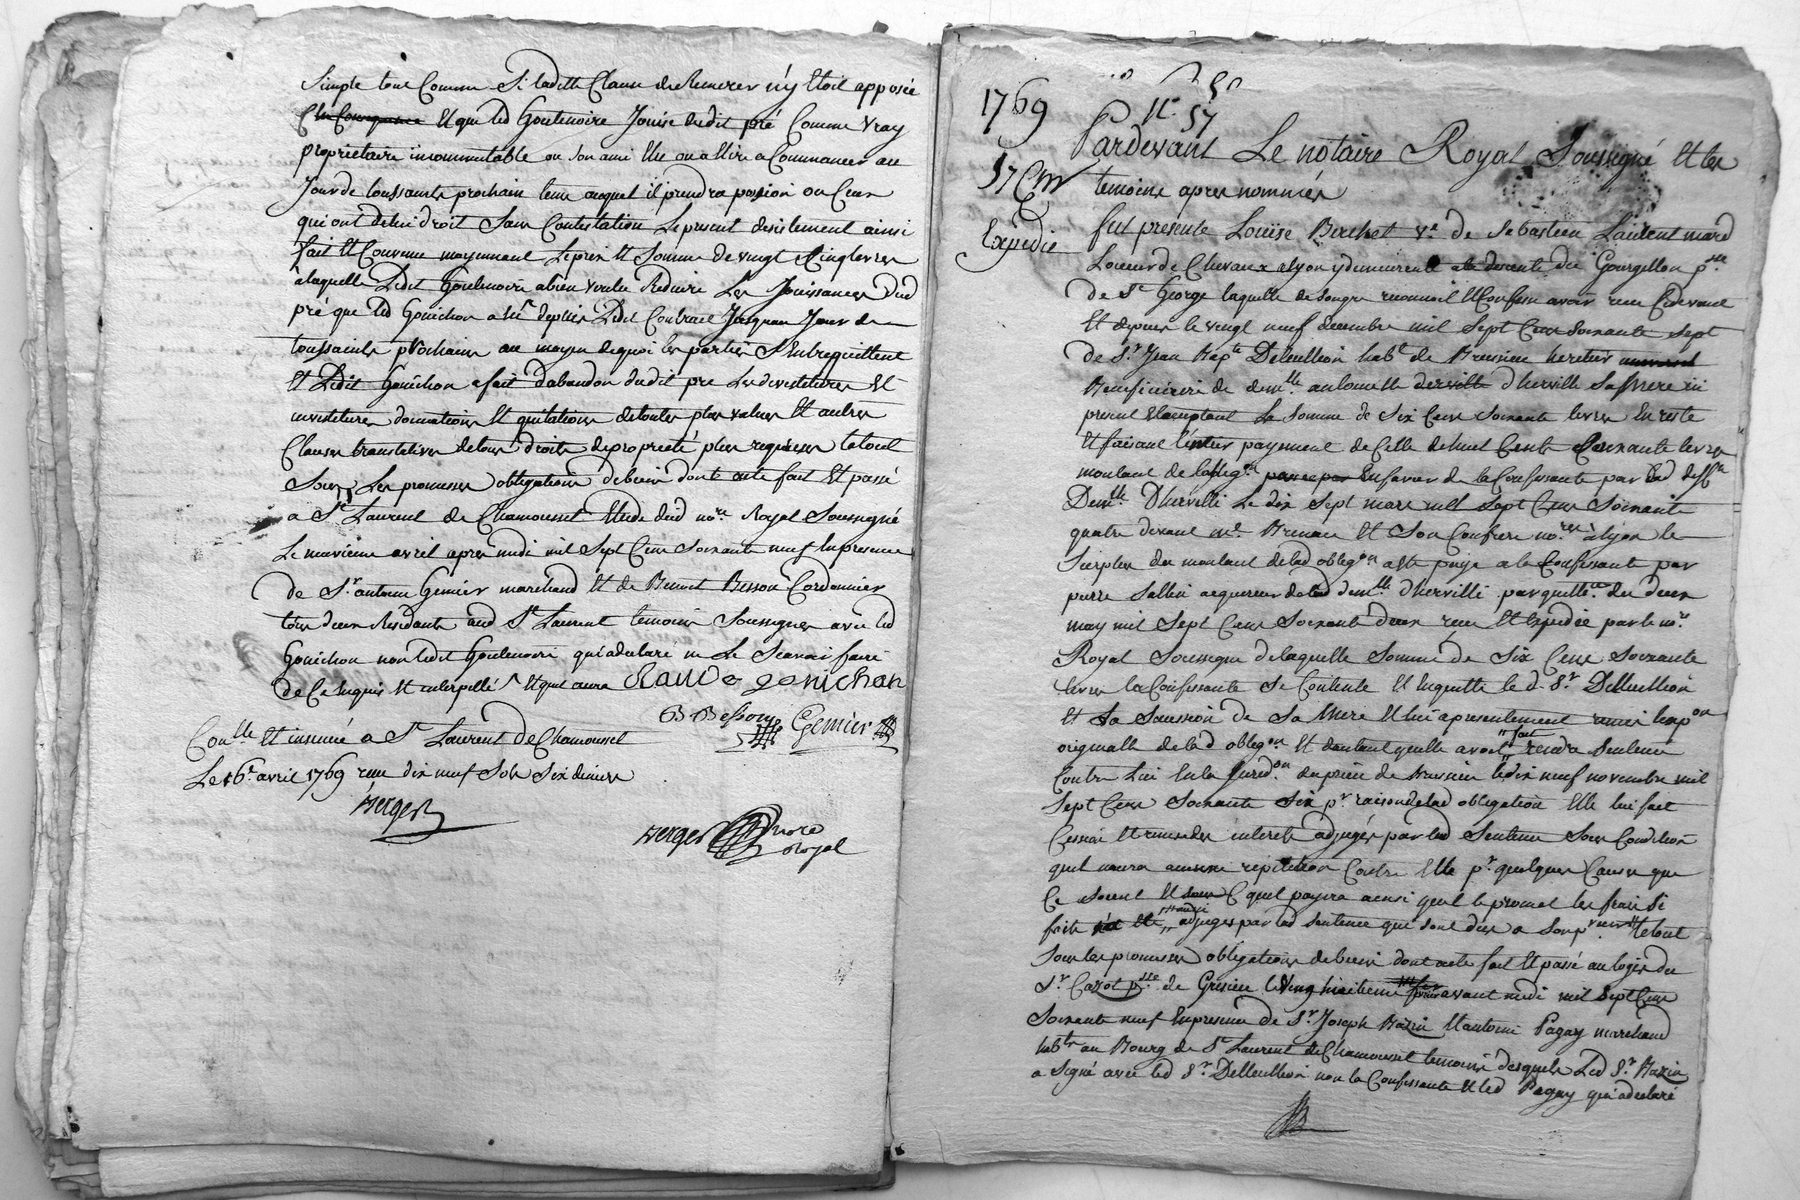 Simple tout Comme Si laditte Clause de Remerer n'y Etoit apposée
Et que led Goutenoire Jouise dudit pré Comme vray
proprietaire incommutable ou Son ami Elu ou a Elire a Commancer au
Jour de toussaints prochain tems auquel il prendra position ou Ceux
qui ont de lui droit Sans Contestation Le present desistement ainsi
fait Et Convenu moyennant Le prix Et Somme de vingt Cinq livres
a laquelle Ledit Goutenoire a bien voulu Reduire Les Jouissances dud
pré que led Gonichon a depuis Ledit Contract Jusqu'au Jour de
toussaints prochains au moyen de quoi les parties S'Entrequittent
Et Ledit Gonichon a fait d'abandon dudit pre Les devestitures Et
investitures donnations Et quitations de toutes plus values Et autres
Clauses translatives de tous droits de proprieté plus requises le tout
Sous Les promesses obligations de biens dont acte fait Et passé
a St Laurent de Chamousset Etude dud nore Royal Soussigné
Le neuvieme avril apres midi mil Sept Cens Soixante neuf En presence
de Sr antoine Gemier marchand Et de Benoit Besson Cordonnier
tous deux Residants aud St Laurent temoins Soussignes avec led
Gonichon non ledit Goutenoire qui a declaré ne Le Scavoir faire
de Ce Enquis Et interpellé
B Besson Gemier
Conlle Et insinué a St Laurent de Chamousset
Le 16e avril 1769 reçu dix neuf Sols Six deniers
Berger
Berger nore
Royal
1769
No 57
Pardevant Le notaire Royal Soussigné Et les
57
temoins apres nommés
Expedié
fut presente Louise Berchet ve de Sebastien Laurent mard
Loueur de Chevaux a Lyon y demeurant a la descente du Gourgillon psse
de St George laquelle de Son gré reconnoit Et Confesse avoir reçu Cidevant
Et depuis le vingt neuf decembre mil Sept Cens Soixante Sept
de Sr Jean Bapte Delleullion habt de Bressieu heritier
Beneficiaire de demlle antoinette d'herville Sa Mere ici
present Et acceptant La Somme de Six Cens Soixante livres En reste
Et faisant l'entier payement de Celle de huit Cents Soixante livres
montant de l'obligon En faveur de la Confessante par lad
Demlle D'herville Le dix Sept mars mil Sept Cens Soixante
quatre devant me Et Son Confrere nores a Lyon le
Surplus du montant de lad obligon a Eté payé a la Confessante par
pierre Sallin acquereur de lad demlle d'herville par quittce du deux
may mil Sept Cens Soixante Deux reçu Et Expedié par le nore
Royal Soussigné de laquelle Somme de Six Cens Soixante
livres la Confessante Se Contente Et En quitte le d Sr Delleullion
Et La Succession de Sa Mere Et lui a presentement remis l'Expon
originalle de lad obligon Et d'autant qu'elle avoit fait rendre Sentence
Contre Lui En la Juridon le dix neuf novembre mil
Sept Cens Soixante Six pr raison de lad obligation Elle lui fait
Cession Et remise des interets adjugés par lad Sentence Sous Condition
qu'il n'aura aucune repetition Contre Elle pr quelques Causes que
Ce Soient Et qu'il payera ainsi qu'il le promet les frais Si
faits adjuges par lad Sentence qui Sont dües a Son procureur le tout
Sous les promesses obligations de biens dont acte fait Et passé au logis du
Sr Cazot psse de Grisieu avant midi mil Sept Cens
Soixante neuf En presence de Sr Joseph Bazin Et antoine Pagay marchand
habts au Bourg de St Laurent de Chamousset temoins desquels Led Sr Bazin
a Signé avec led Sr Delleullion non la Confessante Et led Pagay qui a declaré